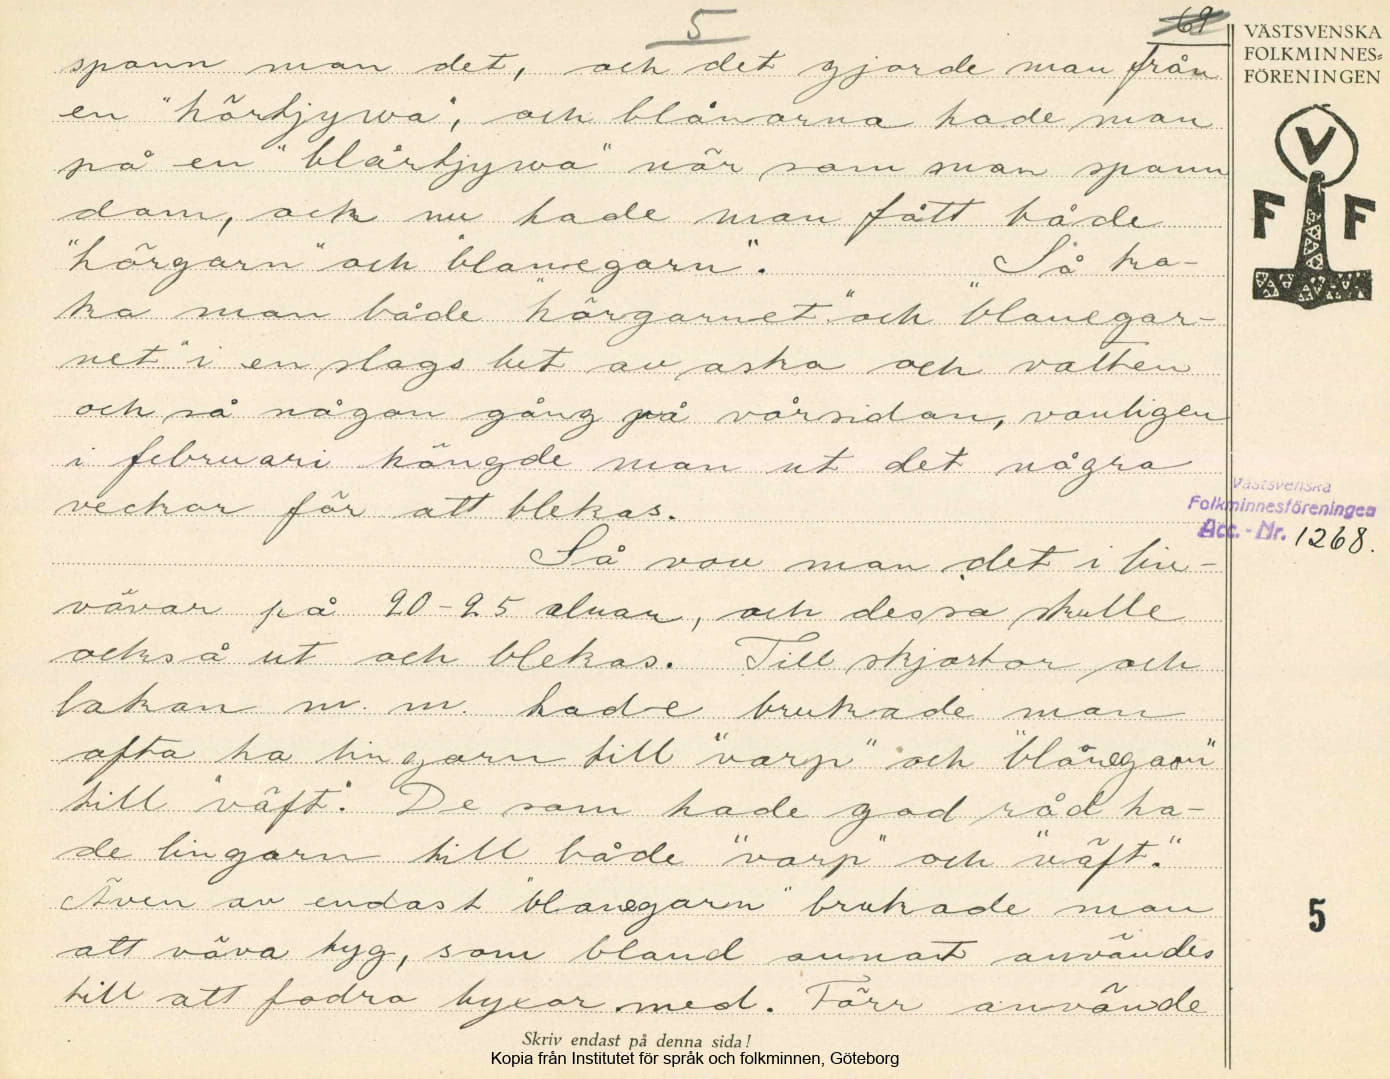 5
69
VÄSTSVENSKA
FOLKMINNES-
FÖRENINGEN
V
F F
spann man det, och det gjorde man från
en "hörtjywa", och blånorna hade man
på en "blårtjywa" när som man spann
dom, och nu hade man fått både
"hörgarn" och "blanegarn". Så ko-
ka man både "hörgarnet" och "blanegar-
net" i en slags lut av aska och vatten
och så någon gång på vårsidan, vanligen
i februari hängde man ut det några
veckor för att blekas.
Så vov man det i lin-
vävar på 20-25 alnar, och dessa skulle
också ut och blekas. Till skjortor och
lakan m. m. hade brukade man
ofta ha lingarn till "varp" och "blånegarn"
till "väft". De som hade god råd ha-
de lingarn till både "varp" och "väft."
Även av endast "blanegarn" brukade man
att väva tyg, som bland annat användes
till att fodra byxor med. Förr använde
Västsvenska
Folkminnesföreningen
Acc.-Nr. 1268.
5
Skriv endast på denna sida!
Kopia från Institutet för språk och folkminnen, Göteborg